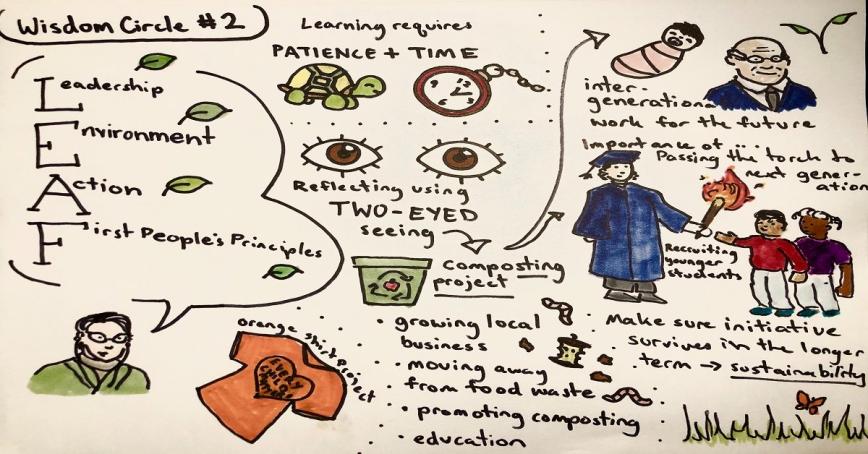 Wisdom Circle #2
Leadership
Environment
Action
First People's Principles
Learning requires
PATIENCE + TIME
Reflecting using
TWO-EYED
seeing
Composting
project
orange shirt project
EVERY
CHILD
MATTERS
• growing local
business
• moving away
from food waste
• promoting composting
• education
inter-
generational
work for the future
Importance of...
Passing the torch to
next gener-
ation
Recruiting
younger
students
Make sure initiative
survives in the longer
term → sustainability